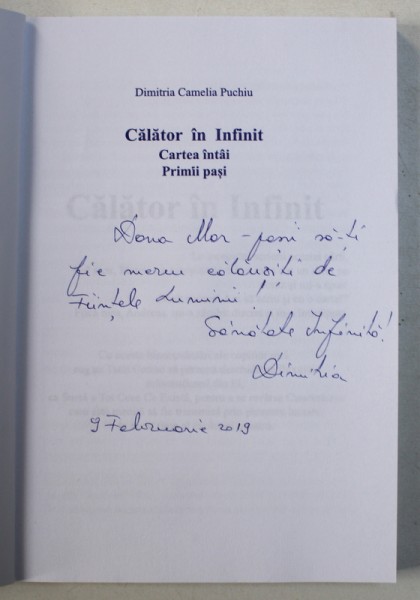 Dimitria Camelia Puchiu
Călător în Infinit
Cartea întâi
Primii pași
Dona Mor - pașii să-ți
fie mereu călăuziți de
Ființele Luminii!
Sănătate Infinită!
Dimitria
9 Februarie 2019